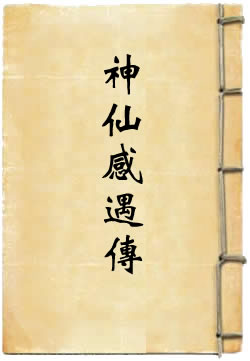 神仙感遇傳